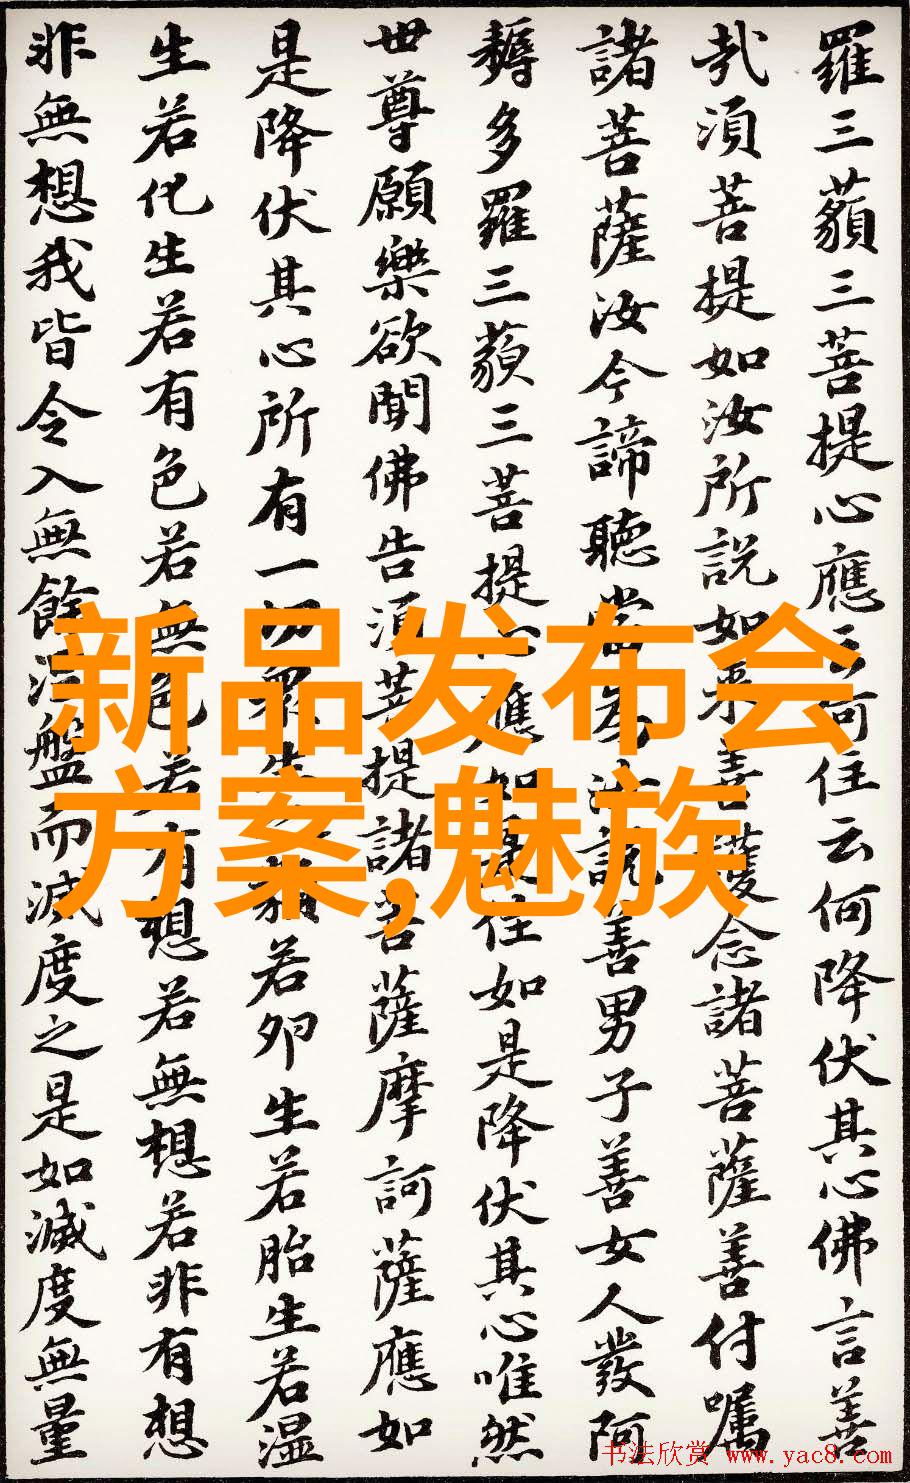 羅三藐三菩提心應云何住云何降伏其心佛言善
哉須菩提如汝所說如来善護念諸菩薩善付嘱
諸菩薩汝今諦聽當為汝說善男子善女人發阿
耨多羅三藐三菩提心應如是住如是降伏其心唯然
世尊願樂欲聞佛告須菩提諸菩薩摩訶薩應如
是降伏其心所有一切眾生之類若卵生若胎生若湿
生若化生若有色若無色若有想若無想若非有想
非無想我皆令入無餘涅盤而滅度之是如滅度無量
新品发布会
方案,魅族
书法欣赏 www.yac8.com